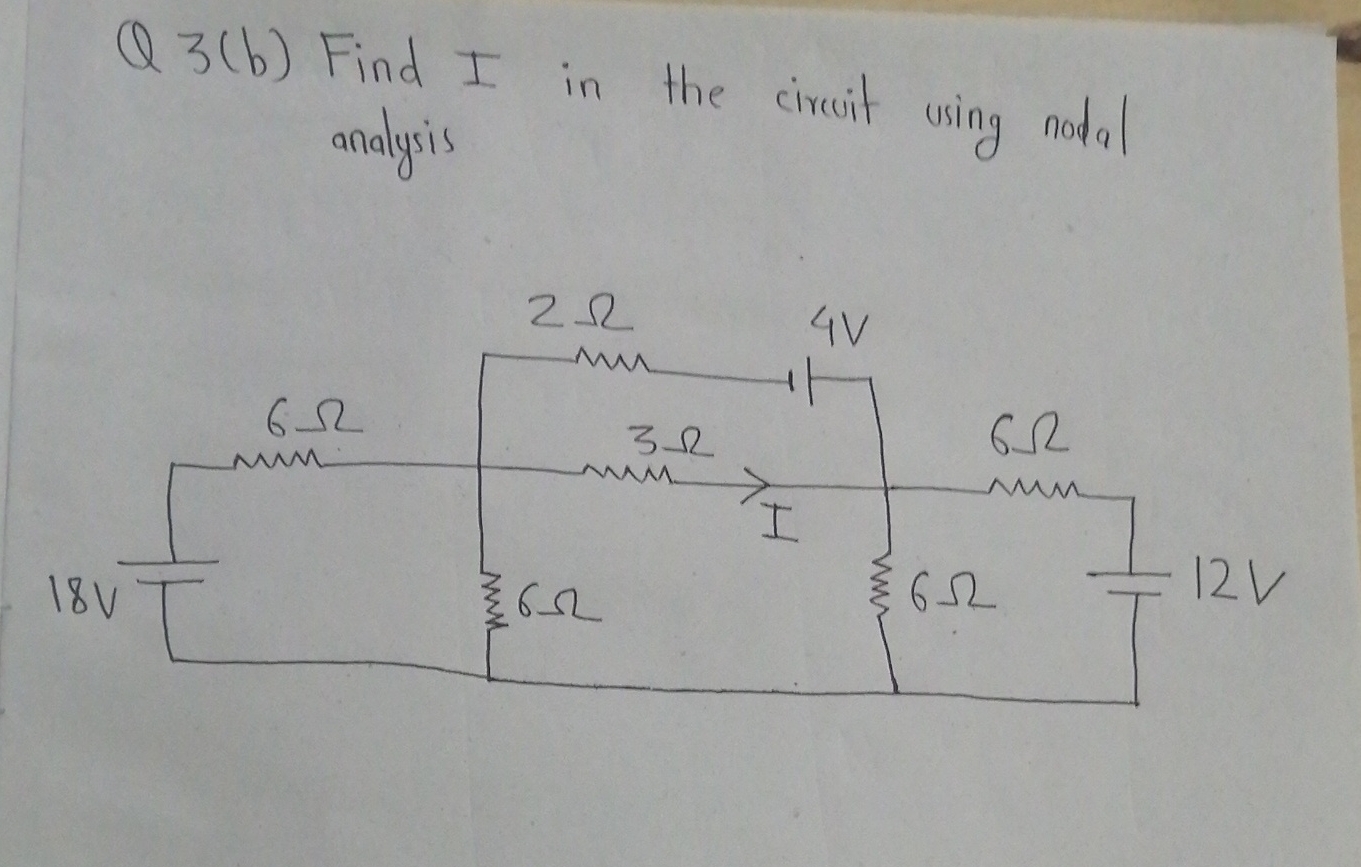 Q 3(b) Find I in the circuit using nodal
analysis
2Ω
4V
6Ω
3Ω
6Ω
I
18V
6Ω
6Ω
12V